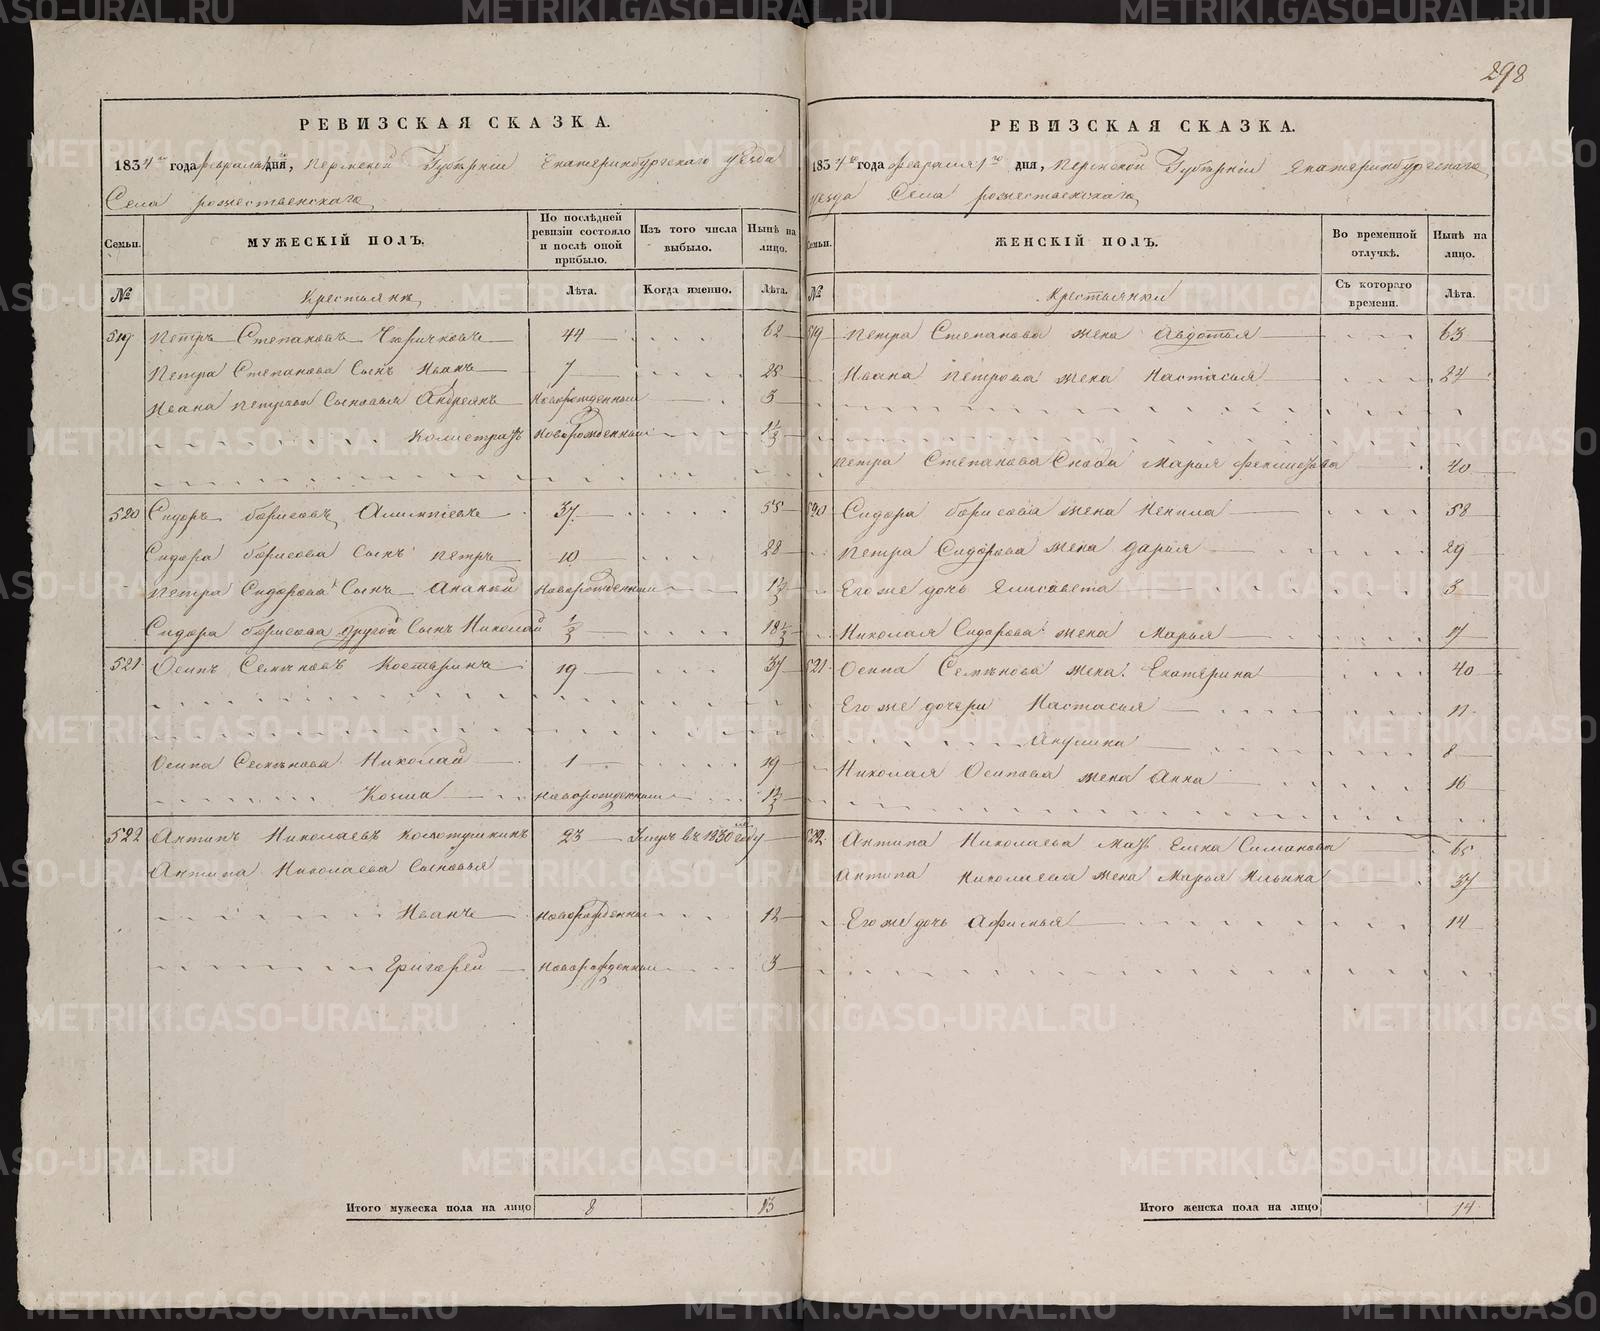 298
РЕВИЗСКАЯ СКАЗКА.
1834 го года февраля дня, Пермской Губернiи Екатеринбургскаго уезда
Села рожественскаго
Семьи.
МУЖЕСКIЙ ПОЛЪ.
По послѣдней ревизiи состояло и послѣ оной прибыло.
Изъ того числа выбыло.
Нынѣ на лицо.
№
Крестьяне
Лѣта.
Когда именно.
Лѣта.
519 Петръ Степановъ 44 62
Петра Степанова Сынъ Иванъ 7 25
Ивана Петрова Сыновья Андреянъ Новорожденный 3
Калистратъ Новорожденный 1 1/2
520 Сидоръ борисовъ 37 55
Сидора борисова Сынъ Петръ 10 28
Петра Сидорова Сынъ Ананий Новорожденный 1 1/2
Сидора борисова другой Сынъ Николай 1/2 18 1/2
521 Осипъ Семеновъ Костаринъ 19 37
Осипа Семенова Николай 1 19
Козма Новорожденный 1 1/2
522 Антипъ Николаевъ Колотушкинъ 23 Умеръ въ 1830 году
Антипа Николаева Сыновья
Иванъ Новорожденный 12
Григорей Новорожденный 3
Итого мужеска пола на лицо 8 13
РЕВИЗСКАЯ СКАЗКА.
1834 го года февраля 1 го дня, Пермской Губернiи Екатеринбургскаго
уезда Села рожественскаго
Семьи.
ЖЕНСКIЙ ПОЛЪ.
Во временной отлучкѣ.
Нынѣ на лицо.
№
Крестьянки
Съ котораго времени.
Лѣта.
519 Петра Степанова жена Авдотья 63
Ивана Петрова жена Настасья 24
Петра Степанова Сноха Марья 40
520 Сидора борисова жена Ненила 58
Петра Сидорова жена дарья 29
Его же дочь Елисавета 3
Николая Сидорова жена Марья 17
521 Осипа Семенова жена Екатерина 40
Его же дочери Настасья 11
Акулина 8
Николая Осипова жена Анна 16
522 Антипа Николаева Мать Елена Симанова 65
Антипа Николаева жена Марья Ильина 37
Его же дочь Афимья 14
Итого женска пола на лицо 14
METRIKI.GASO-URAL.RU